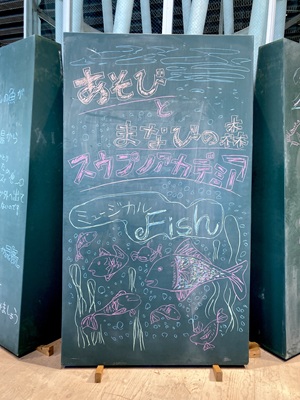 あそび
と
まなびの森
スウプノアカデミア
ミュージカル
Fish